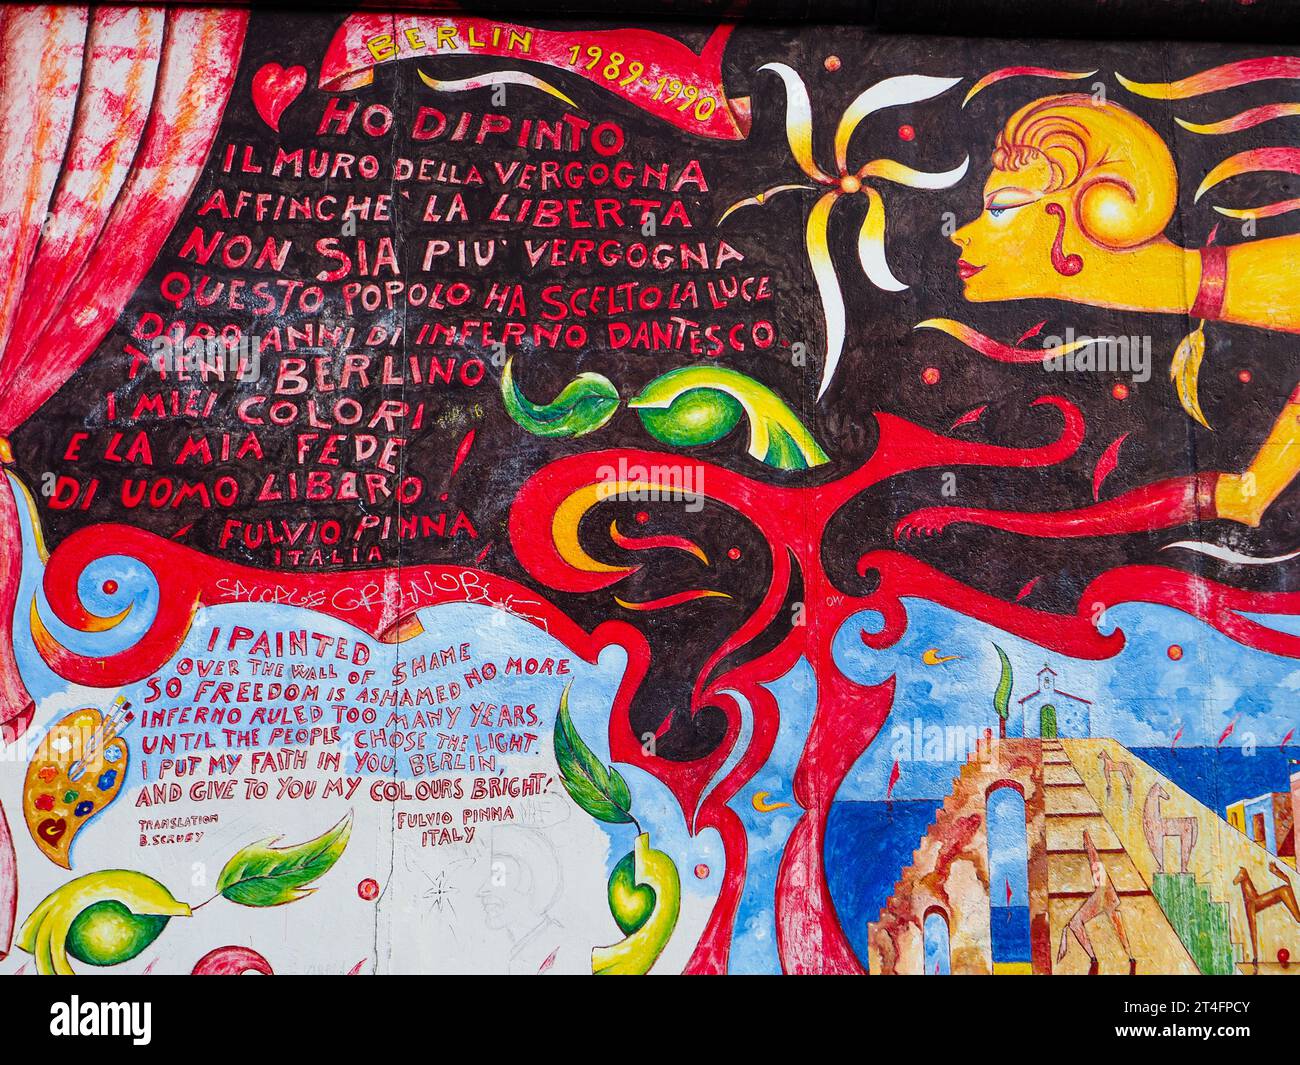 BERLIN 1989-1990
HO DIPINTO
IL MURO DELLA VERGOGNA
AFFINCHE' LA LIBERTA'
NON SIA PIU' VERGOGNA
QUESTO POPOLO HA SCELTO LA LUCE
DOPO ANNI DI INFERNO DANTESCO.
TIENI BERLINO
I MIEI COLORI
E LA MIA FEDE
DI UOMO LIBERO!
FULVIO PINNA
ITALIA
I PAINTED
OVER THE WALL OF SHAME
SO FREEDOM IS ASHAMED NO MORE
INFERNO RULED TOO MANY YEARS,
UNTIL THE PEOPLE CHOSE THE LIGHT.
I PUT MY FAITH IN YOU BERLIN,
AND GIVE TO YOU MY COLOURS BRIGHT!
TRANSLATION
B. SCRUBY
FULVIO PINNA
ITALY
alamy
Image ID: 2T4FPCY
www.alamy.com